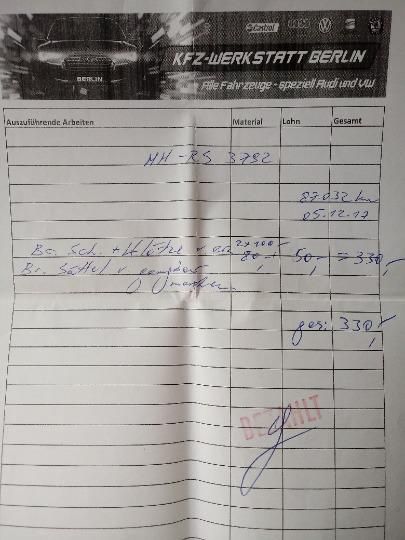 Castrol
BERLIN
KFZ-WERKSTATT BERLIN
Alle Fahrzeuge - speziell Audi und VW
Auszuführende Arbeiten Material Lohn Gesamt
MH-RS 3792
87032 km
05.12.17
Br. Sch. + Klötze v 2x100,- 50,- = 330,-
Br. Sättel v 80,-
ges: 330,-
BEZAHLT